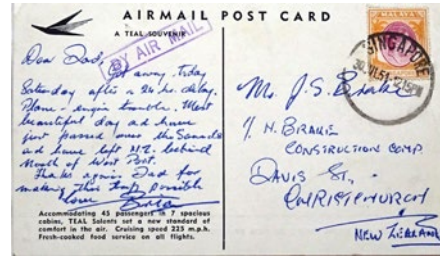 AIRMAIL POST CARD
A TEAL SOUVENIR
BY AIR MAIL
Dear Dad,
away today
Saturday after a 24 hr. delay.
Plane - engin trouble. Most
beautiful day and have
just passed over the Sounds
and have left N.Z. behind
North of West Port.
Thanks again Dad for
making this trip possible
love
Accommodating 45 passengers in 7 spacious
cabins, TEAL Solents set a new standard of
comfort in the air. Cruising speed 225 m.p.h.
Fresh-cooked food service on all flights.
MALAYA
SINGAPORE
SINGAPORE
Mr. J.S. Brake
N. BRAKE
CONSTRUCTION COMP.
DAVIS ST.,
CHRISTCHURCH
NEW ZEALAND